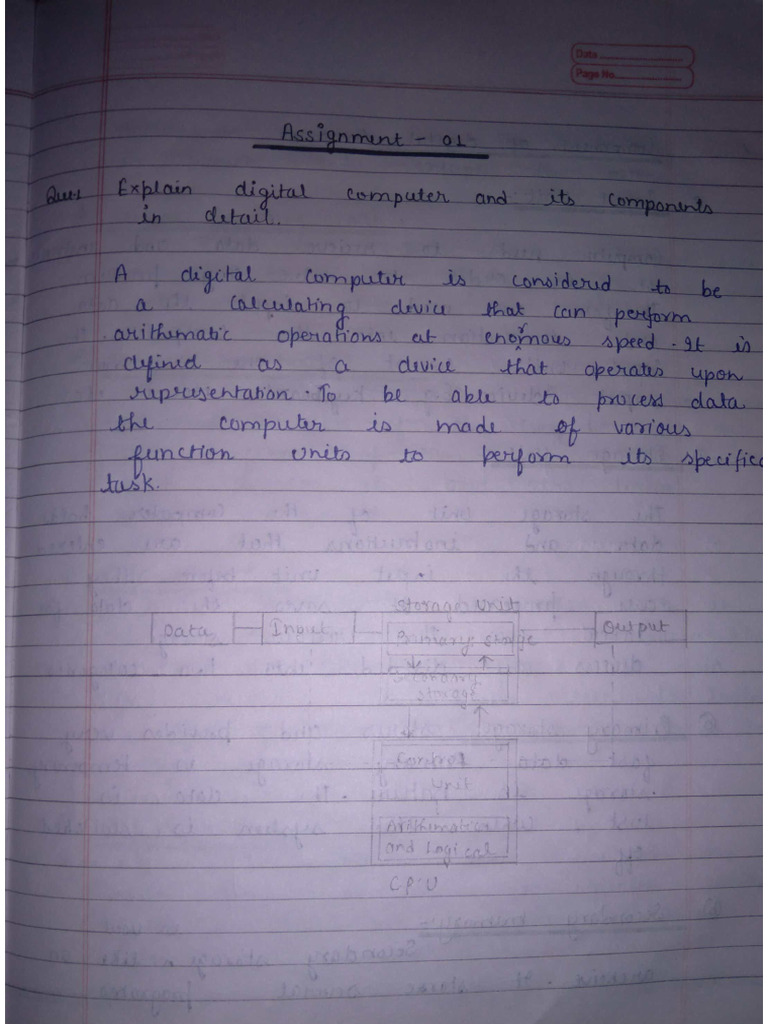 Data
Page No.
Assignment - 01
Ques1 Explain digital computer and its components
in detail.
A digital computer is considered to be
a calculating device that can perform
arithematic operations at enormous speed. It is
defined as a device that operates upon
representation. To be able to process data
the computer is made of various
function units to perform its specific
task.
Storage Unit
Data Input Primary Output
Secondary
storage
Control
Unit
Arithmatic
and Logical
C.P.U